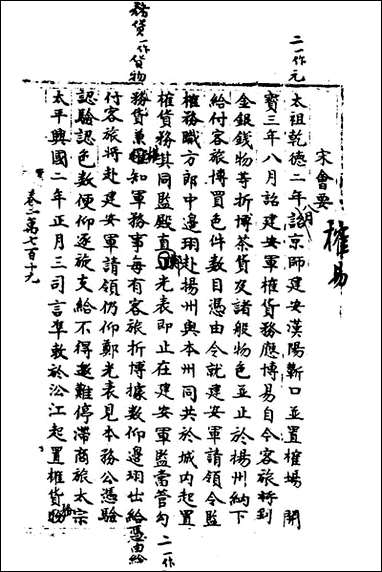 宋會要
榷易
太祖乾德二年詔京師建安漢陽蘄口並置榷場 開
寶三年八月詔建安軍榷貨務應博易自今客旅將到
金銀錢物等折博茶貨及諸般物色並止於揚州納下
給付客旅博買色件數目憑由令就建安軍請領令監
榷務職方郎中邊珝赴揚州與本州同共於城内起置
榷貨務其同監殿直鄭光表即止在建安軍監當管勾
務貨兼權知軍務事每有客旅折博據數仰邊珝出給
付客旅將赴建安軍請領仍仰鄭光表見本務公憑驗
認驗認色數便仰逐旋支給不得邀難停滯商旅太宗
太平興國二年正月三司言准敕於㳂江起置榷貨務
二一作元
月
務貨一作貨物
二一作
憑由給
卷二萬七百十九